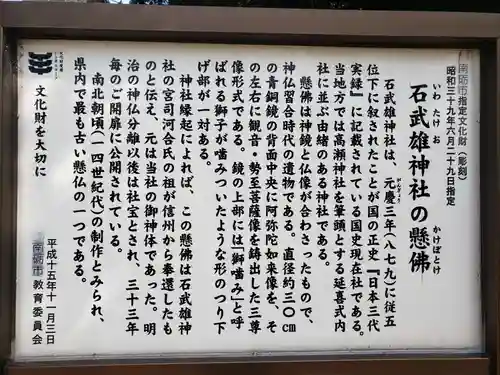 南砺市指定文化財（彫刻）
昭和三十九年六月二十九日指定
いわ たけ お　かけぼとけ
石武雄神社の懸佛
がんぎょう
石武雄神社は、元慶三年（八七九）に従五
位下に叙されたことが国の正史『日本三代
実録』に記載されている国史現在社である。
当地方では高瀬神社を筆頭とする延喜式内
社に並ぶ由緒のある神社である。
懸佛は神鏡と仏像が合わさったもので、
神仏習合時代の遺物である。直径約三〇cm
の青銅鏡の背面中央に阿弥陀如来像を、そ
の左右に観音・勢至菩薩像を鋳出した三尊
像形式である。鏡の上部には「獅噛み」と呼
ばれる獅子が噛みついたような形のつり下
げ部が一対ある。
神社縁起によれば、この懸佛は石武雄神
社の宮司河合氏の祖が信州から奉還したも
のと伝え、元は当社の御神体であった。明
治の神仏分離以後は社宝とされ、三十三年
毎のご開扉に公開されている。
南北朝頃（一四世紀代）の制作とみられ、
県内で最も古い懸仏の一つである。
平成十五年十一月三日
南砺市 教育委員会
文化財愛護
シンボルマーク
文化財を大切に